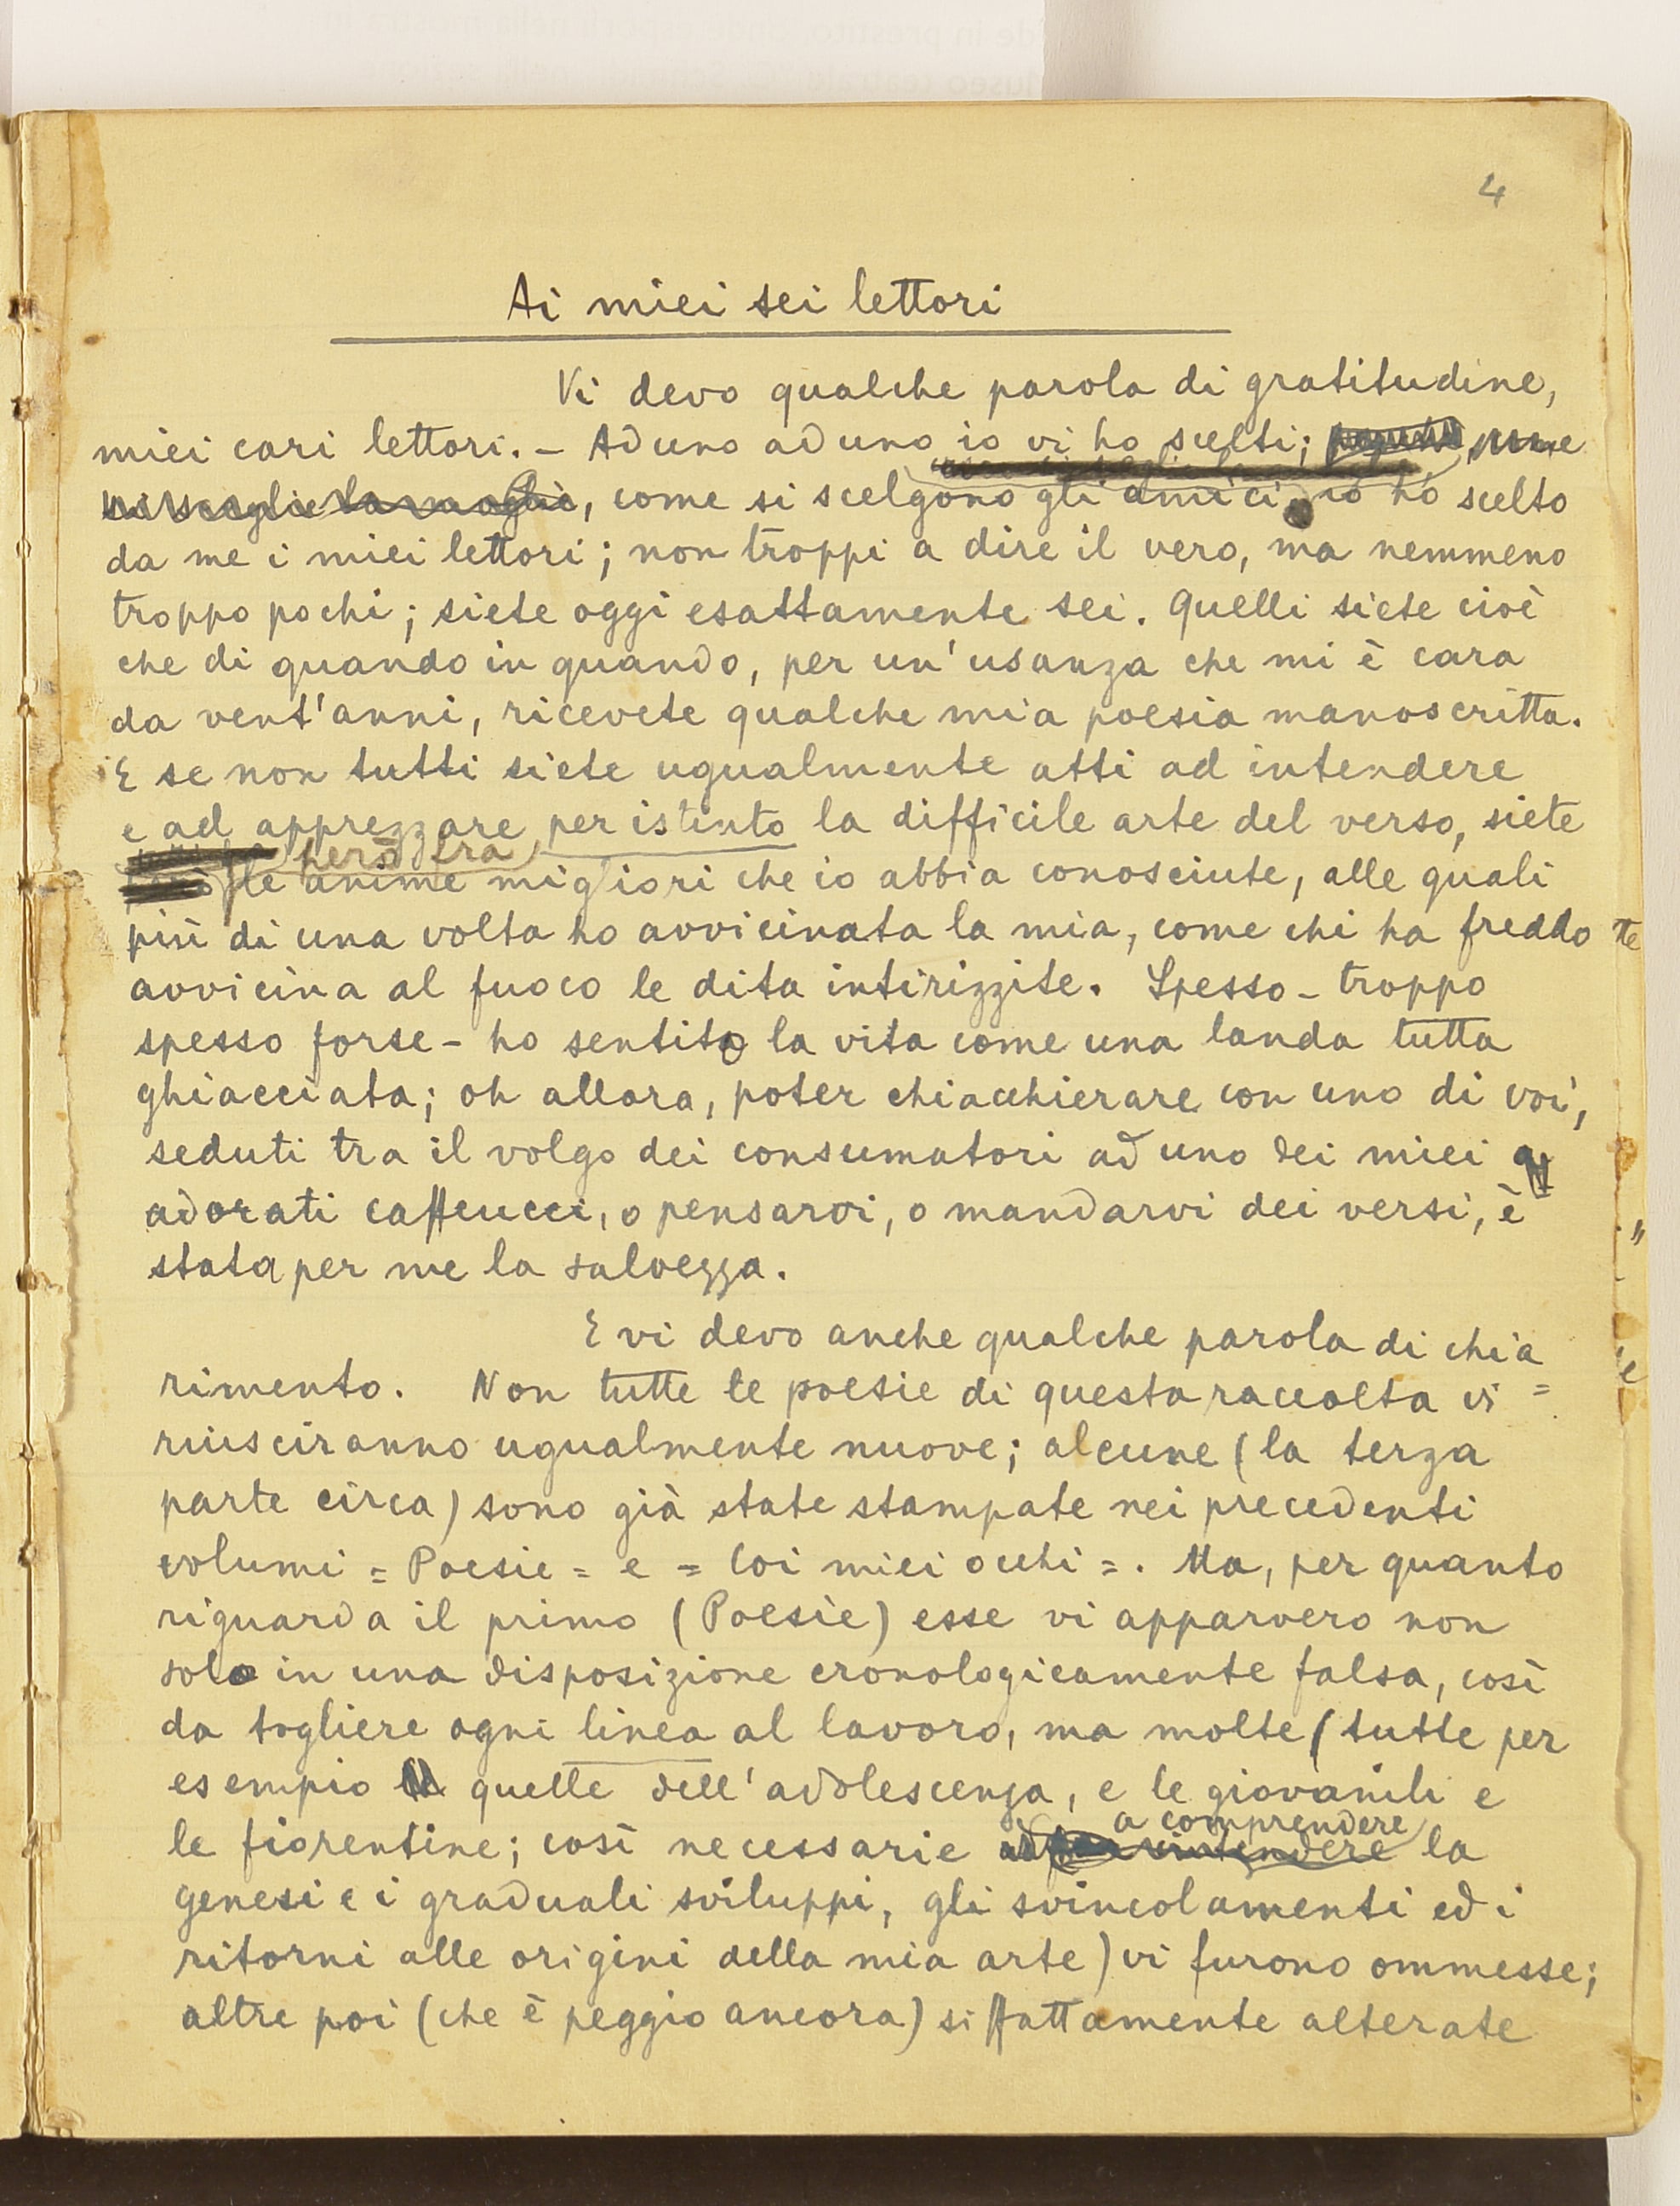 4
Ai miei sei lettori
Vi devo qualche parola di gratitudine,
miei cari lettori. – Ad uno ad uno io vi ho scelti;
, come si scelgono gli amici io ho scelto
da me i miei lettori; non troppi a dire il vero, ma nemmeno
troppo pochi; siete oggi esattamente sei. Quelli siete cioè
che di quando in quando, per un' usanza che mi è cara
da vent'anni, ricevete qualche mia poesia manoscritta.
E se non tutti siete ugualmente atti ad intendere
e ad apprezzare per istinto la difficile arte del verso, siete
però tra
le anime migliori che io abbia conosciute, alle quali
più di una volta ho avvicinata la mia, come chi ha freddo
avvicina al fuoco le dita intirizzite. Spesso – troppo
spesso forse – ho sentito la vita come una landa tutta
ghiacciata; oh allora, poter chiacchierare con uno di voi,
seduti tra il volgo dei consumatori ad uno dei miei
adorati caffeucci, o pensarvi, o mandarvi dei versi, è
stata per me la salvezza.
E vi devo anche qualche parola di chia=
rimento. Non tutte le poesie di questa raccolta vi
riusciranno ugualmente nuove; alcune (la terza
parte circa) sono già state stampate nei precedenti
volumi = Poesie = e = Coi miei occhi =. Ma, per quanto
riguarda il primo (Poesie) esse vi apparvero non
solo in una disposizione cronologicamente falsa, così
da togliere ogni linea al lavoro, ma molte (tutte per
esempio quelle dell'adolescenza, e le giovanili e
a comprendere
le fiorentine; così necessarie la
genesi e i graduali sviluppi, gli svincolamenti ed i
ritorni alle origini della mia arte) vi furono ommesse;
altre poi (che è peggio ancora) siffattamente alterate